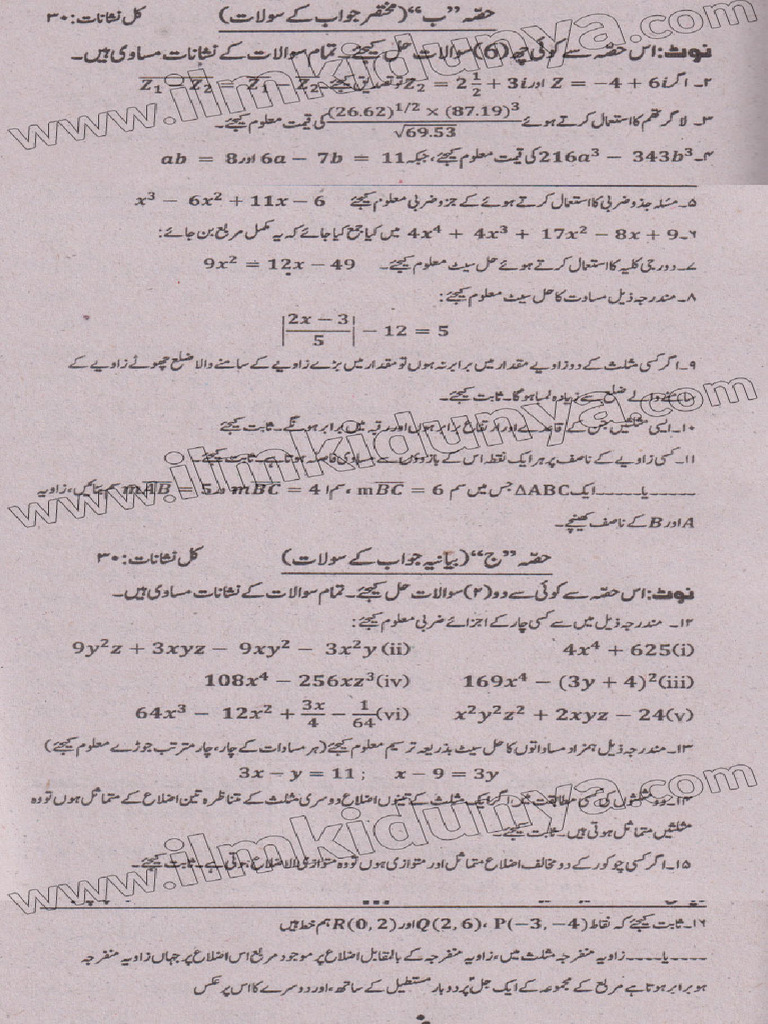 حصّہ ”ب“ (مختصر جواب کے سولات) کل نشانات: ۳۰
نوٹ: اس حصّہ سے کوئی چھ (6) سوالات حل کیجئے۔ تمام سوالات کے نشانات مساوی ہیں۔
۲۔ اگر Z = −4 + 6i اور Z₂ = 2 1/2 + 3i تو تصدیق کیجئے Z₁ − Z₂ = Z₁ − Z₂
۳۔ لاگرتھم کا استعمال کرتے ہوئے (26.62)^1/2 × (87.19)^3 / √69.53 کی قیمت معلوم کیجئے۔
۴۔ 216a³ − 343b³ کی قیمت معلوم کیجئے، جبکہ 6a − 7b = 11 اور ab = 8
۵۔ مسئلہ جذو ضربی کا استعمال کرتے ہوئے کے جزو ضربی معلوم کیجئے x³ − 6x² + 11x − 6
۶۔ 4x⁴ + 4x³ + 17x² − 8x + 9 میں کیا جمع کیا جائے کہ یہ مکمل مربع بن جائے:
۷۔ دو رجی کلیہ کا استعمال کرتے ہوئے حل سیٹ معلوم کیجئے۔ 9x² = 12x − 49
۸۔ مندرجہ ذیل مساوت کا حل سیٹ معلوم کیجئے:
|2x − 3 / 5| − 12 = 5
۹۔ اگر کسی مثلث کے دو زاویے مقدار میں برابر نہ ہوں تو مقدار میں بڑے زاویے کے سامنے والا ضلع چھوٹے زاویے کے
سامنے والے ضلع سے زیادہ لمبا ہوگا۔ ثابت کیجئے۔
۱۰۔ ایسی مثلثیں جن کے قاعدے اور ارتفاع برابر ہوں اور رقبہ میں برابر ہونگے۔ ثابت کیجئے
۱۱۔ کسی زاویے کے ناصف پر ہر ایک نقطہ اس کے بازوؤں سے مساوی فاصلہ ہوتا ہے ثابت کیجئے
۔۔۔۔۔۔یا۔۔۔۔۔ ایک ΔABC جس میں سم mBC = 6 ، سم mBC = 4 اور mAB = 5 سم بنائیں، زاویہ
A اور B کے ناصف کھینچے۔
حصّہ ”ج“ (بیانیہ جواب کے سولات) کل نشانات: ۳۰
نوٹ: اس حصّہ سے کوئی سے دو (۲) سوالات حل کیجئے۔ تمام سوالات کے نشانات مساوی ہیں۔
۱۲۔ مندرجہ ذیل میں سے کسی چار کے اجزائے ضربی معلوم کیجئے:
4x⁴ + 625 (i) 9y²z + 3xyz − 9xy² − 3x²y (ii)
169x⁴ − (3y + 4)² (iii) 108x⁴ − 256xz³ (iv)
x²y²z² + 2xyz − 24 (v) 64x³ − 12x² + 3x/4 − 1/64 (vi)
۱۳۔ مندرجہ ذیل ہمزاد مساواتوں کا حل سیٹ بذریعہ ترسیم معلوم کیجئے (ہر مساوات کے چار، چار مترتب جوڑے معلوم کیجئے)
3x − y = 11 ; x − 9 = 3y
۱۴۔ دو مثلثوں کی کسی مطابقت میں اگر ایک مثلث کے تینوں اضلاع دوسری مثلث کے متناظرہ تین اضلاع کے متماثل ہوں تو وہ
مثلثیں متماثل ہوتی ہیں۔ ثابت کیجئے۔
۱۵۔ اگر کسی چوکور کے دو مخالف اضلاع متماثل اور متوازی ہوں تو وہ متوازی الاضلاع ہوتی ہے۔ ثابت کیجئے۔
۱۶۔ ثابت کیجئے کہ نقاط P(−3, −4) ، Q(2, 6) اور R(0, 2) ہم خط ہیں
۔۔۔۔۔یا۔۔۔۔۔ زاویہ منفرجہ مثلث میں، زاویہ منفرجہ کے بالمقابل اضلاع پر موجود مربع اس اضلاع پر جہاں زاویہ منفرجہ
ہو برابر ہوتا ہے مربع کے مجموعہ کے ایک جمل پر دوبار مستطیل کے ساتھ، اور دوسرے کا اس پر عکس
www.ilmkidunya.com
www.ilmkidunya.com
www.ilmkidunya.com